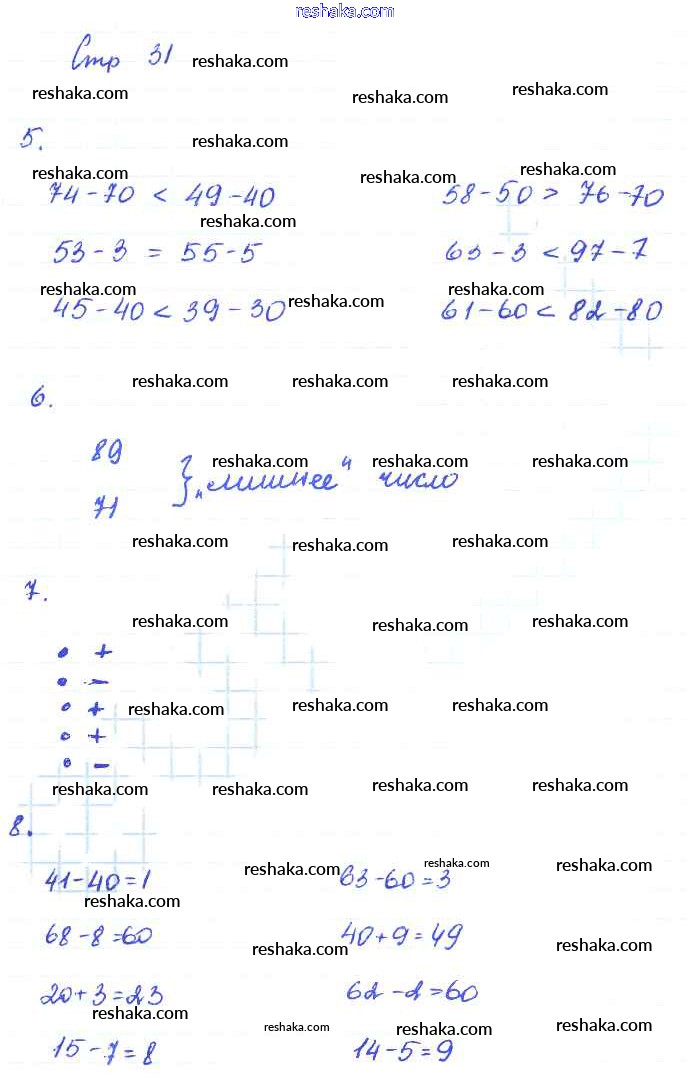 reshaka.com
Стр 31 reshaka.com
reshaka.com reshaka.com reshaka.com
5. reshaka.com
reshaka.com reshaka.com reshaka.com
74-70 < 49-40 58-50 > 76-70
reshaka.com
53-3 = 55-5 63-3 < 97-7
reshaka.com reshaka.com reshaka.com
45-40 < 39-30 61-60 < 82-80
reshaka.com reshaka.com reshaka.com
6.
89
reshaka.com reshaka.com reshaka.com
} „лишнее" число
71
reshaka.com reshaka.com reshaka.com
7.
reshaka.com reshaka.com reshaka.com
• +
• -
• + reshaka.com reshaka.com reshaka.com
• +
• -
reshaka.com reshaka.com reshaka.com reshaka.com
8.
reshaka.com reshaka.com reshaka.com
41-40=1 63-60=3
reshaka.com
68-8=60 40+9=49
reshaka.com reshaka.com
20+3=23 62-2=60
reshaka.com reshaka.com reshaka.com reshaka.com
15-7=8 14-5=9